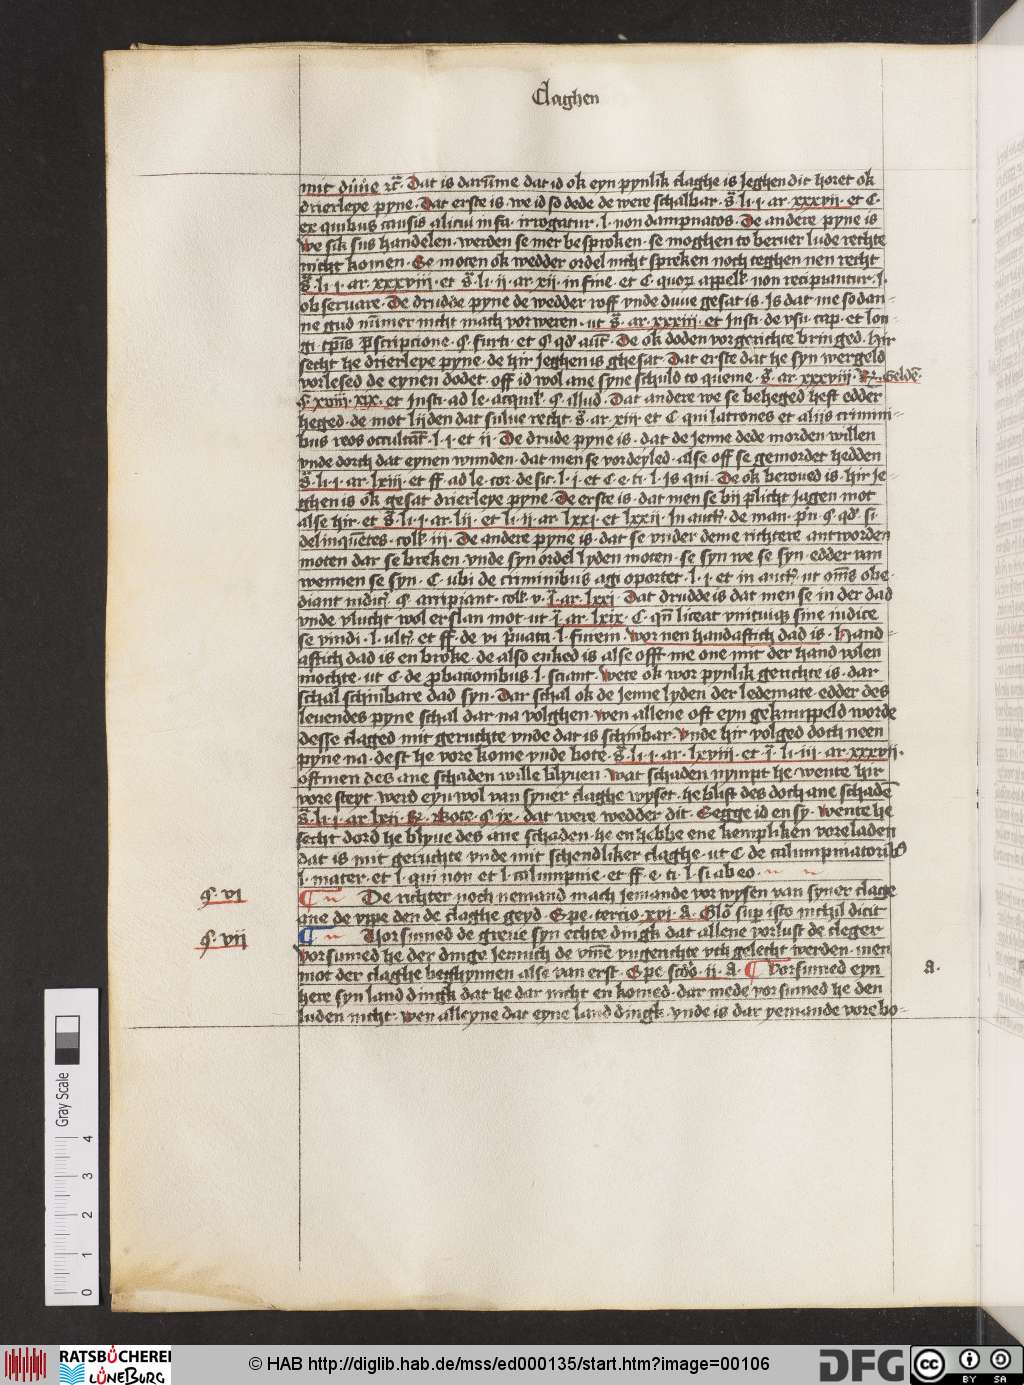 Claghen
mit duue ꝛc̄. Dat is darūme dat id ok eyn pynlik claghe is Jeghen dit horet ok
drierleye pyne. Dat erste is. we id so dede de were schalbar. s̄. li. i. ar. xxxvii. et C.
ex quibus causis alicui infa. irrogatur. l. non dampnatos. De andere pyne is
we sik sus handelen. werden se mer besproken. se moghen to beruer lude rechte
nicht komen. Se moten ok wedder ordel nicht spreken noch teghen nen recht
s̄. li. i. ar. xxxviii. et s̄. li. ii. ar. xii. in fine. et C. quoꝝ appell. non recipiantur. l.
obseruare. De drudde pyne de wedder roff vnde duue gesat is. Is dat me sodan-
ne gud nūmer nicht mach vorweren. ut s̄. ar. xxxiii. et Insti. de vsu cap. et lon
gi tp̄is p̄scripcione. §. furti. et §. qd̓ aut̄. De ok doden vor gerichte bringed. hir
secht he drierleye pyne. de hir Jeghen is ghesat. Dat erste dat he syn wergeld
vorlesed de eynen dodet. off id wol ane syne schuld to queme. s̄. ar. xxxviii. R. Geldē.
§. xviii. xix. et Insti. ad le. aquil. §. illud. Dat andere we se beheged heft edder
heged. de mot lijden dat sulue recht. s̄. ar. xiii. et C. qui latrones et alijs crimini-
bus reos occultāt. l. i. et ii. De drude pyne is. dat de jenne dede morden willen
vnde dorch dat eynen wunden. dat men se vordeyled. alse off se gemordet hedden
s̄. li. i. ar. lxiii. et ff. ad le. cor. de sic. l. i. et C. e. ti. l. is qui. De ok beroued is. hir je-
ghen is ok gesat drierleye pyne. De erste is. dat men se bij plicht jagen mot
alse hir. et s̄. li. i. ar. lii. et li. ii. ar. lxxi. et lxxii. In auct̄. de man. prin. §. qd̓ si
delinquētes. coll. iii. De andere pyne is. dat se vnder deme richtere antworden
moten dar se breken. vnde syn ordel lyden moten. se syn we se syn. edder van
wennen se syn. C. ubi de criminibus agi oportet. l. i. et in auct̄. ut om̄s obe
diant iudic̄. §. arripiant. coll. v. j̄. ar. lxxi. Dat drudde is dat men se in der dad
vnde vlucht wol erslan mot. ut j̄. ar. lxix. C. qn̄ liceat vnicuique sine iudice
se vindi. l. ult̄. et ff. de vi priuata. l. furem. Wor nen handaftich dad is. Hand-
aftich dad is en broke. de also enked is alse offt me one mit der hand volen
mochte. ut C. de probacionibus. l. sciant. Wete ok wor pynlik gerichte is. dar
schal schinbare dad syn. Dar schal ok de jenne lyden der ledemate. edder des
leuendes pyne schal dar na volghen. wen allene oft eyn geknuppeld worde
desse claged mit geruchte vnde dar is schinbar. Vnde hir volged doch neen
pyne na. dest he vore kome vnde bote. s̄. li. i. ar. lxviii. et j̄. li. iii. ar. xxxvii.
oftmen des ane schaden wille blyuen. Wat schaden nympt he. wente hir
vore steyt. werd eyn wol van syner claghe wyset. he blift des doch ane schadē
s̄. li. i. ar. lxii. R. Bote. §. ix. dat were wedder dit. Segge id en sy. Wente he
secht dord he blyue des ane schaden. he en hebbe ene kempliken vore laden
dat is mit geruchte vnde mit schendliker claghe. ut C. de calumpniatoribꝰ
l. mater. et l. qui non et l. calumpnie. et ff. e. ti. l. si ab eo.
§. vi
De richter noch nemand mach jemande vorwysen van syner clage
ane de vppe den de claghe geyd. Spe. tercio. xvi. A. Glo. sup isto nichil dicit
§. vii
Vorsumed de greue syn echte dingk dat allene vorlust de cleger
Vorsumed he der dinge jennich de vm̄e vngerichte vth gelecht werden. men
mot der claghe beghynnen alse van erst. Spe. scd̓o. ii. A. Vorsumed eyn
a.
here syn land dingk dat he dar nicht en komed. dar mede vorsumed he den
luden nicht. Wen alleyne dat eyne land dingk. vnde is dar yemande vore bo-
Gray Scale
0 1 2 3 4
RATSBÜCHEREI
LÜNEBURG
© HAB http://diglib.hab.de/mss/ed000135/start.htm?image=00106
DFG
cc
BY SA